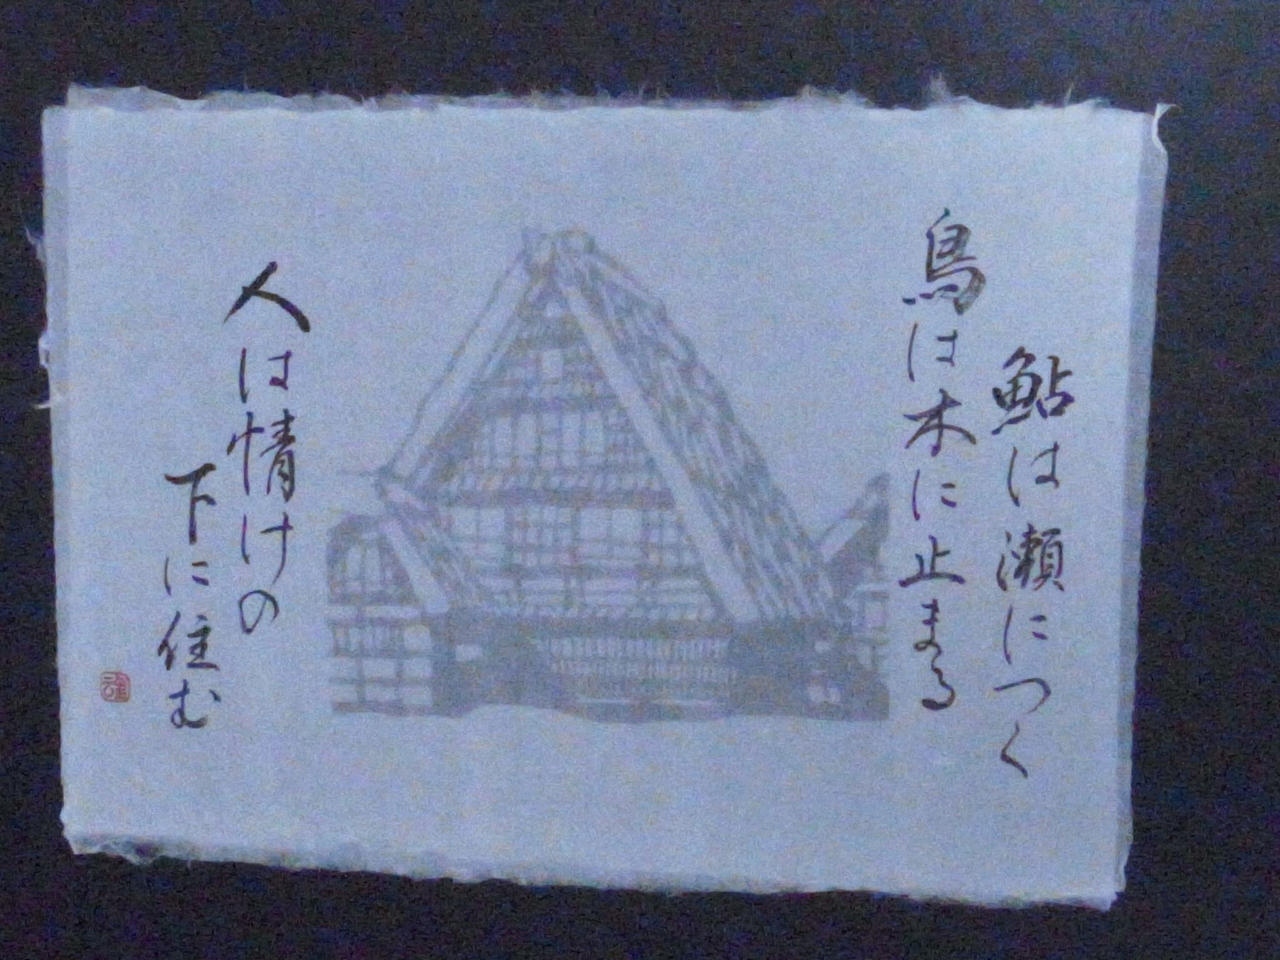 鮎は瀬につく
鳥は木に止まる
人は情けの
下に住む